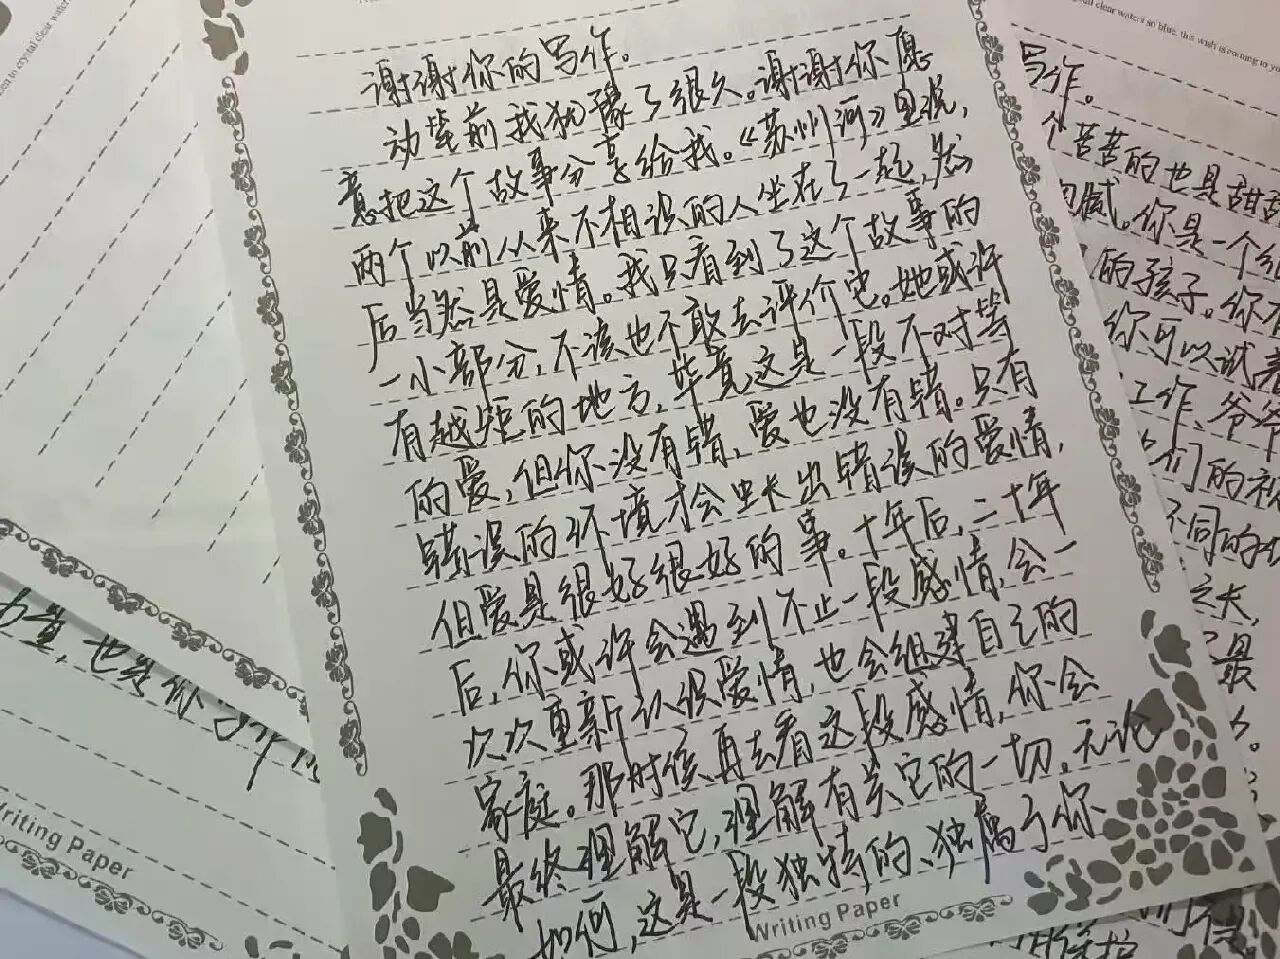 谢谢你的写作。
动笔前我犹豫了很久。谢谢你愿
意把这个故事分享给我。《苏州河》里说，
两个以前从来不相识的人坐在了一起，然
后当然是爱情。我只看到了这个故事的
一小部分，不该也不敢去评价它。她或许
有越矩的地方，毕竟这是一段不对等
的爱，但你没有错，爱也没有错。只有
错误的环境才会生长出错误的爱情，
但爱是很好很好的事。十年后，二十年
后，你或许会遇到不止一段感情，会一
次次重新认识爱情，也会组建自己的
家庭。那时候再去看这段感情，你会
最终理解它，理解有关它的一切。无论
如何，这是一段独特的、独属于你
Writing Paper
写作。
个苦苦的也是甜甜
腻。你是一个
的孩子。你不
你可以试着
工作、爷爷
们的
不同的
之长，
最
也
Writing Paper
clear waters so blue, this wish is coming to yo